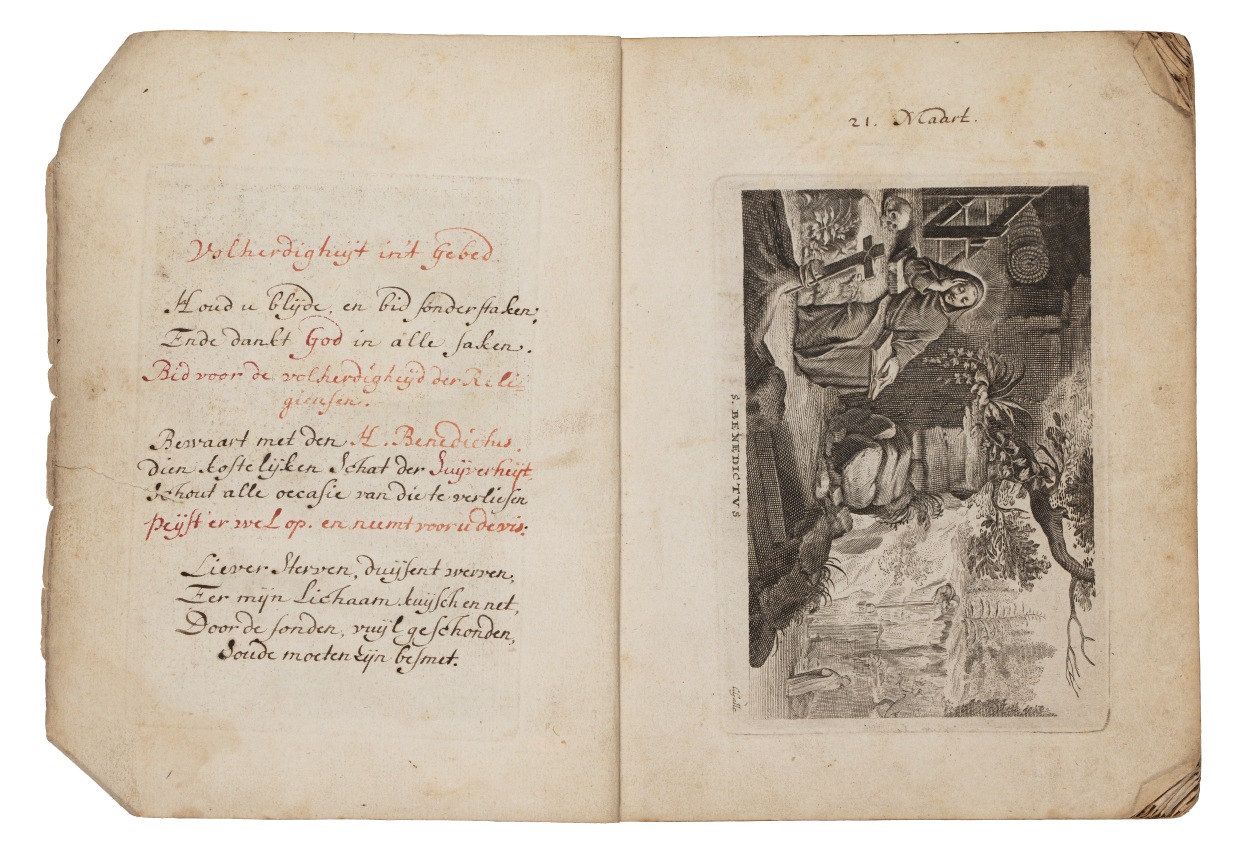 Volherdigheijt in't Gebed.
Houd u blijde, en bid sonder staken,
Ende dankt God in alle saken.
Bid voor de volherdigheijd der Reli-
gieusen.
Bewaart met den H. Benedictus.
dien kostelijken Schat der Suijverheijt,
Schout alle occasie van die te verliesen
Peijst'er wel op. en neemt voor u devis:
Liever Sterven, duijsent werven,
Eer mijn Lichaam kuijsch en net,
Door de sonden, vuijl geschonden,
Soude moeten zijn besmet.
21. Maart.
S. BENEDICTVS